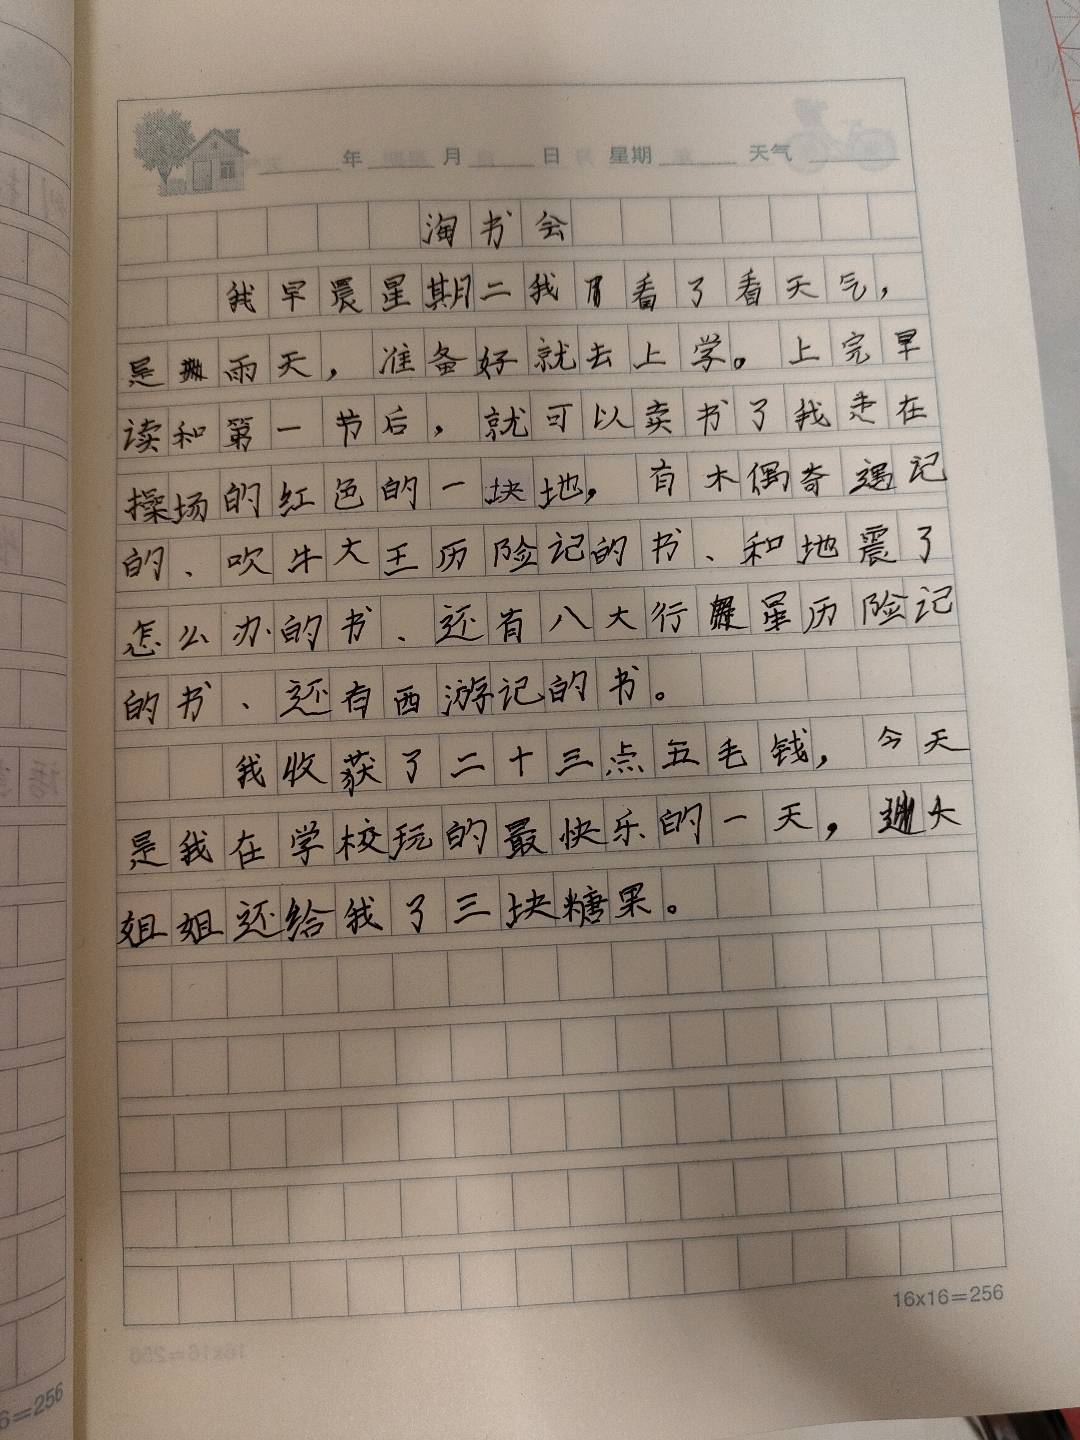 年 月 日 星期 天气
淘书会
我早晨星期二我看了看天气，
是雨天，准备好就去上学。上完早
读和第一节后，就可以卖书了我走在
操场的红色的一块地，有木偶奇遇记
的、吹牛大王历险记的书、和地震了
怎么办的书、还有八大行星历险记
的书、还有西游记的书。
我收获了二十三点五毛钱，今天
是我在学校玩的最快乐的一天，大
姐姐还给我了三块糖果。
16x16=256
6=256